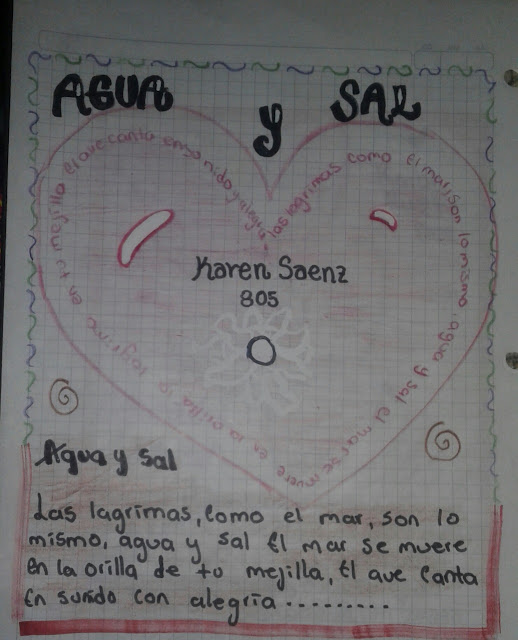 AGUA y SAL
las lagrimas como el mar, son lo mismo, agua y sal el mar se muere en la orilla
la lagrima en tu mejilla el ave canta en su nido y alegria
Karen Saenz
805
Agua y Sal
Las lagrimas, Como el mar, son lo
mismo, agua y sal El mar se muere
en la orilla de tu mejilla, El ave Canta
En sunido con alegria .........